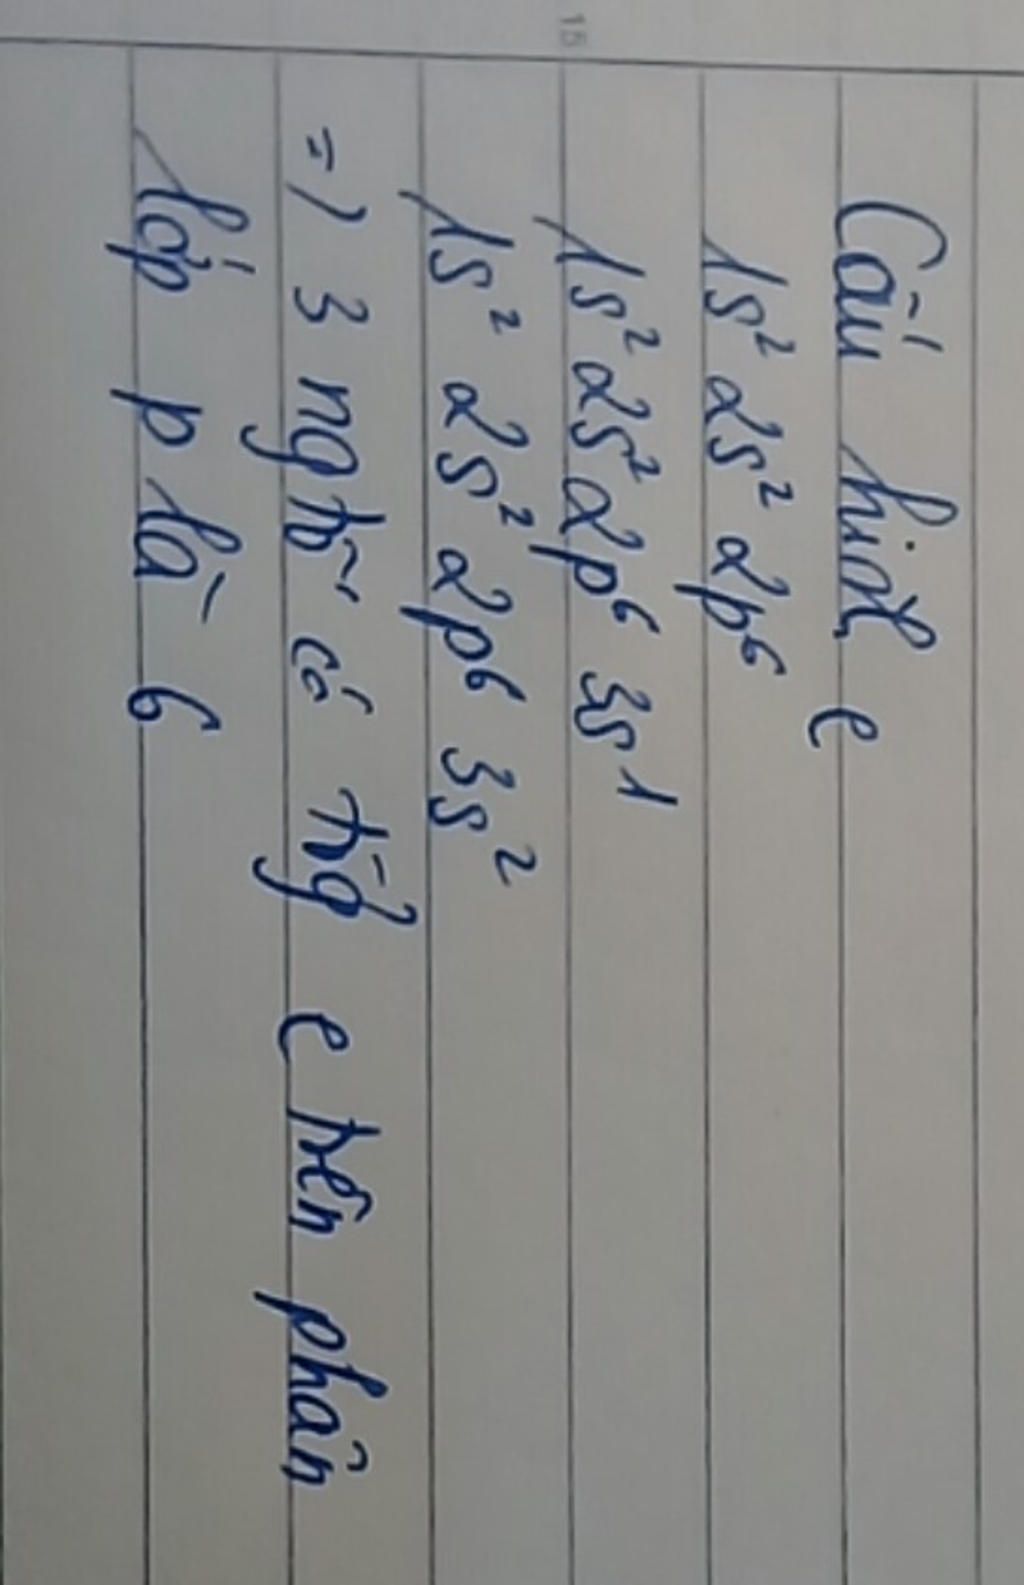 Cấu hình e
1s² 2s² 2p⁶
1s² 2s² 2p⁶ 3s¹
1s² 2s² 2p⁶ 3s²
=) 3 ngtử có tổg e trên phân
lớp p là 6
15